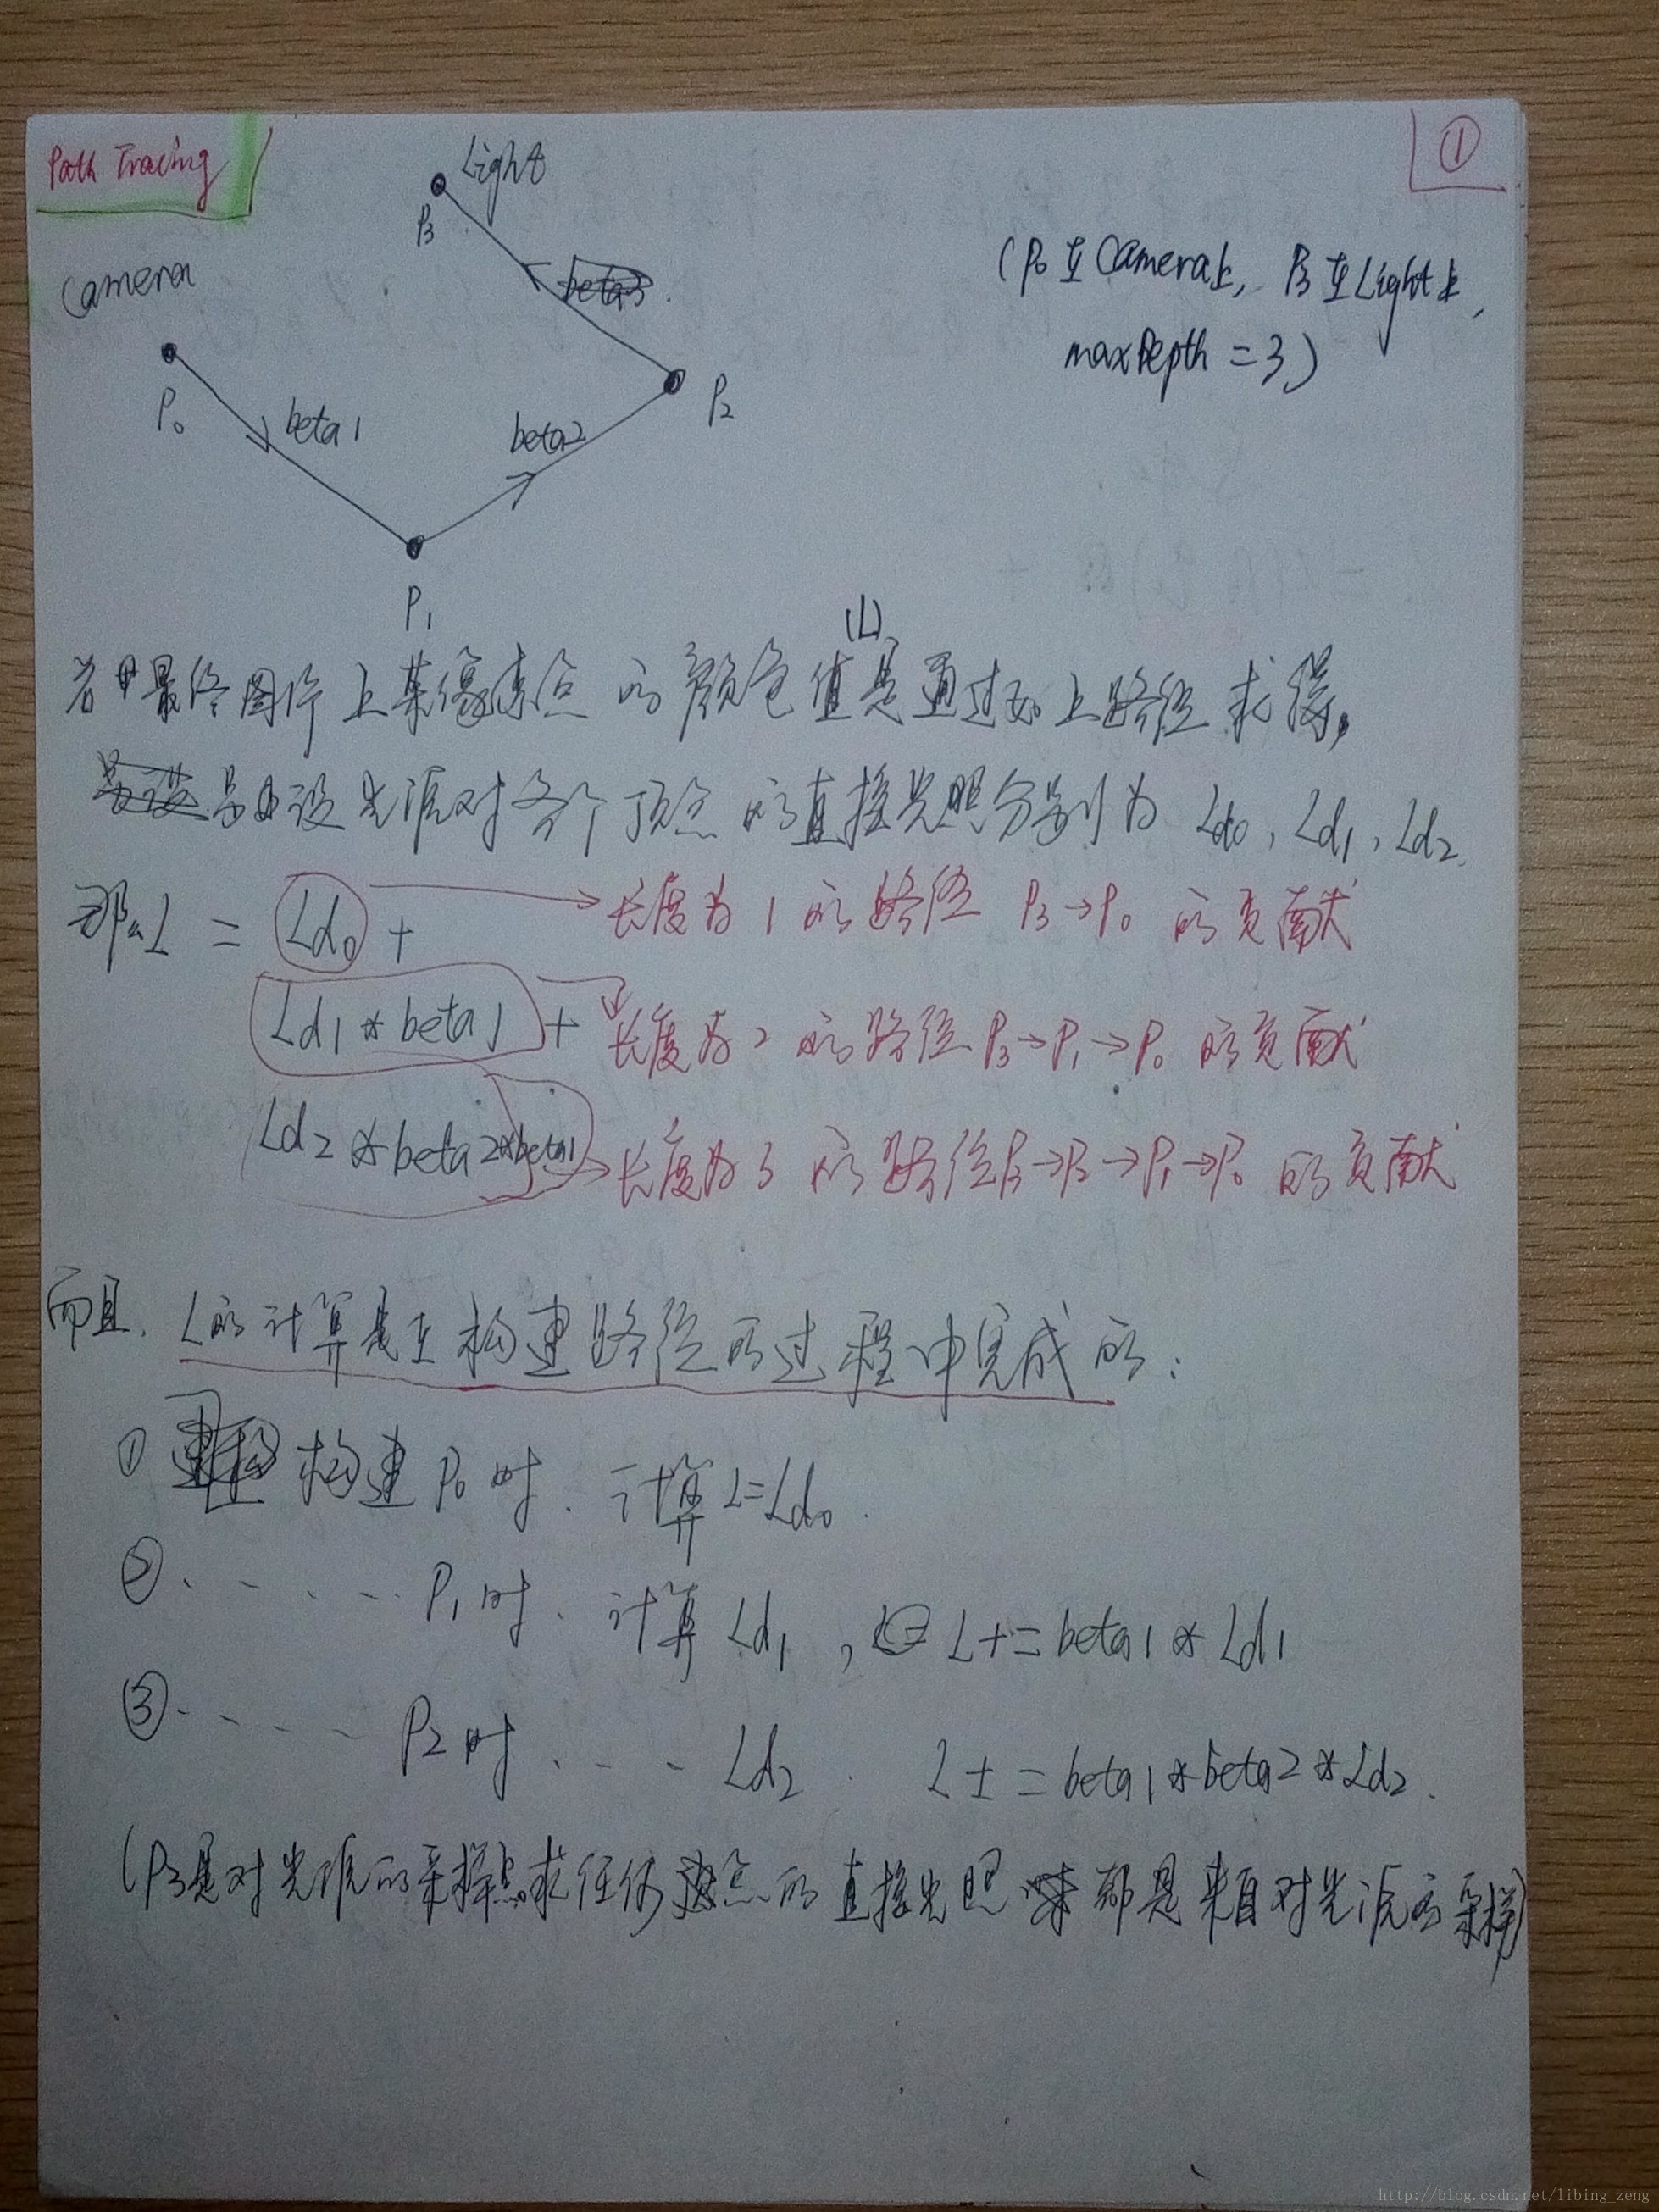 Path Tracing
①
Light
P3
Camera
beta3
(P0在Camera上, P3在Light上,
maxDepth = 3)
P0
beta1
beta2
P2
P1
(L)
若最终图片上某像素点的颜色值是通过如上路径求得,
设光源对各个顶点的直接光照分别为 Ld0, Ld1, Ld2.
那么L = Ld0 + → 长度为1的路径 P3→P0 的贡献
Ld1 * beta1 + 长度为2的路径 P3→P1→P0 的贡献
Ld2 * beta2 * beta1 长度为3的路径P3→P2→P1→P0 的贡献
而且, L的计算是在构建路径的过程中完成的:
① 构建P0时. 计算L=Ld0.
② . . . . . P1时. 计算Ld1, L += beta1 * Ld1
③ . . . . . P2时. . . . Ld2 . L += beta1 * beta2 * Ld2.
(P3是对光源的采样点.求任何点的直接光照都是来自对光源的采样)
http://blog.csdn.net/libing_zeng